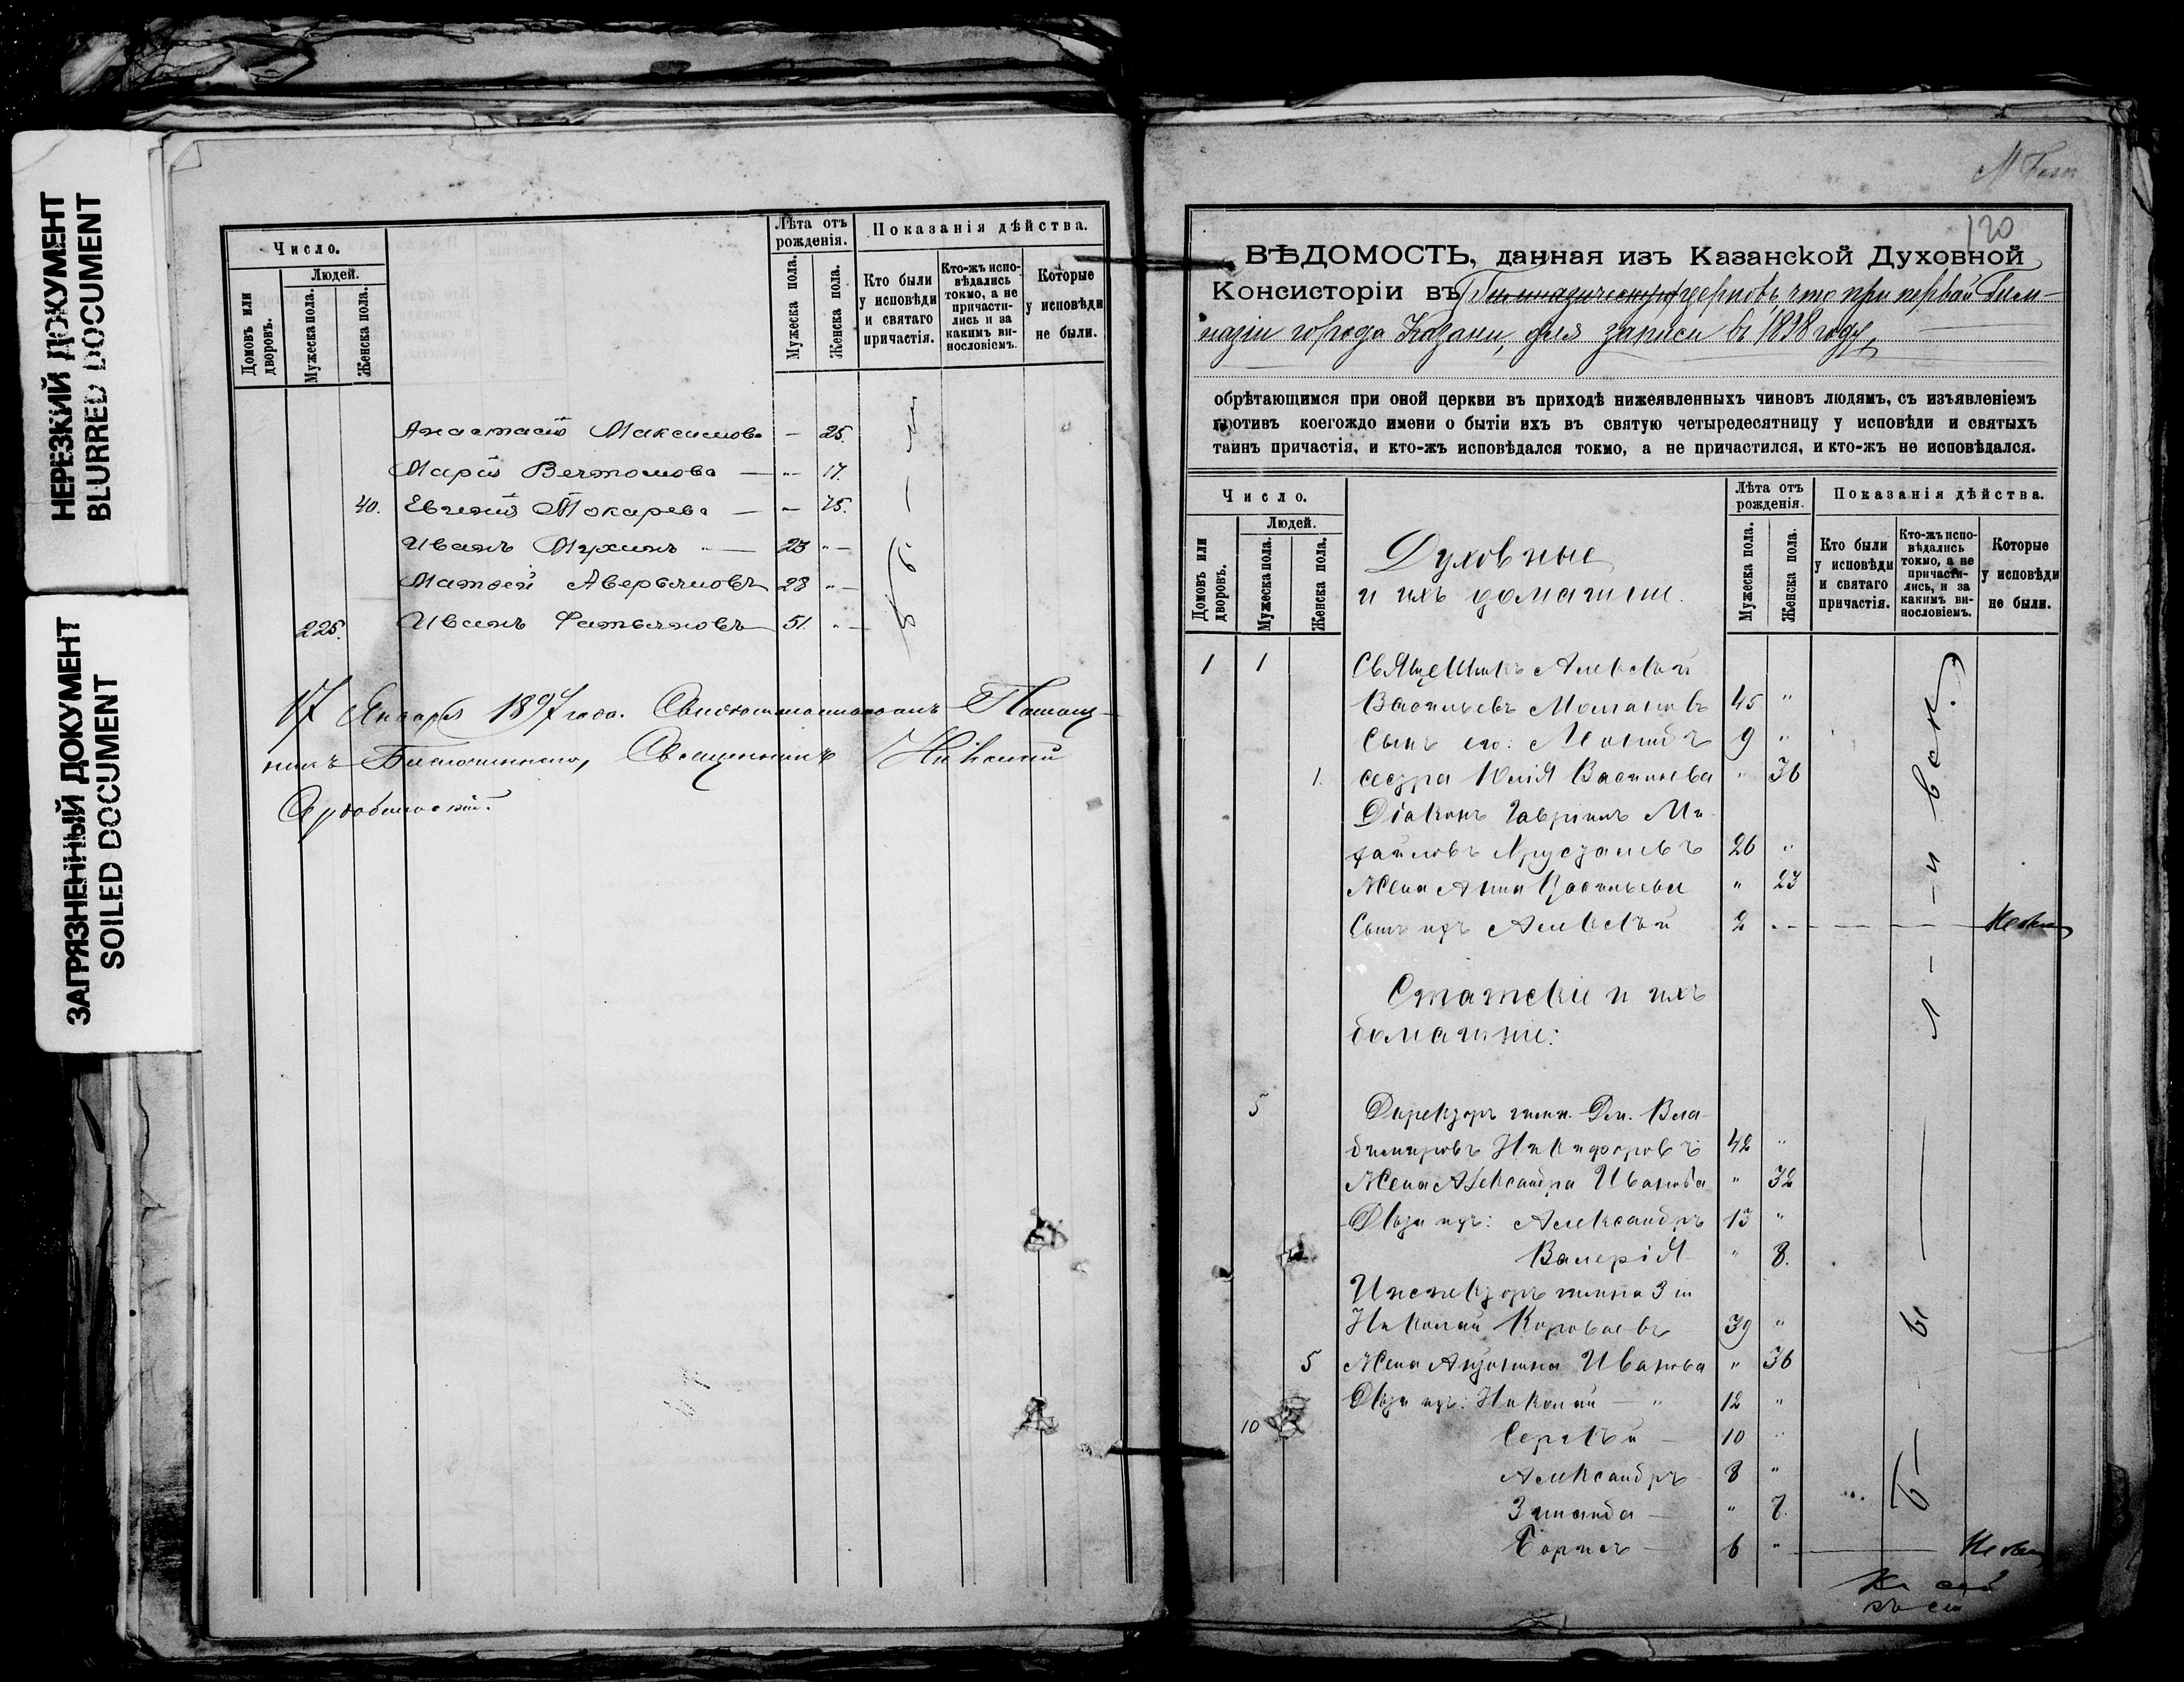 НЕРЕЗКИЙ ДОКУМЕНТ
BLURRED DOCUMENT
ЗАГРЯЗНЕННЫЙ ДОКУМЕНТ
SOILED DOCUMENT
Число.
Людей.
Домовъ или дворовъ.
Мужеска пола.
Женска пола.
Лѣта отъ рожденія.
Мужеска пола.
Женска пола.
Показанія дѣйства.
Кто были у исповѣди и святаго причастія.
Кто-жъ исповѣдались токмо, а не причастились и за какимъ винословіемъ.
Которые у исповѣди не были.
Анастасія Максимова - 25.
Марія 17.
40. Евгенія Токарева 75.
Иванъ Мухинъ 23
Матвей Аверьяновъ 28
225. Иванъ Фатьяновъ 51.
17 Января 1897 года.
Священникъ Николай
120
ВѢДОМОСТЬ, данная изъ Казанской Духовной
Консисторіи въ Гимназическую церковь, что при первой Гим-
назіи города Казани, для записи въ 1898 году,
обрѣтающимся при оной церкви въ приходѣ нижеявленныхъ чиновъ людямъ, съ изъявленіемъ
противъ коегождо имени о бытіи ихъ въ святую четыредесятницу у исповѣди и святыхъ
таинъ причастія, и кто-жъ исповѣдался токмо, а не причастился, и кто-жъ не исповѣдался.
Число.
Людей.
Домовъ или дворовъ.
Мужеска пола.
Женска пола.
Духовные
и ихъ домашніе.
Лѣта отъ рожденія.
Мужеска пола.
Женска пола.
Показанія дѣйства.
Кто были у исповѣди и святаго причастія.
Кто-жъ исповѣдались токмо, а не причастились, и за какимъ винословіемъ.
Которые у исповѣди не были.
1 1 Священникъ Алексѣй
Васильевъ 45 "
Сынъ его: Леонидъ 9 "
1. сестра Юлія Васильева " 36
Діаконъ Гавріилъ Ми-
хайловъ Хрусталевъ 26 "
Жена Анна Васильева " 23
Сынъ ихъ Алексѣй 2
Статскіе и ихъ
домашніе:
5 Директоръ гимн. Дм. Вла-
димировъ Никифоровъ 42 "
Жена Александра Иванова " 32
Дѣти ихъ: Александръ 13 "
Валерія " 8.
Инспекторъ гимназіи
Николай Короваевъ 39 "
5 Жена Антонина Иванова " 36
Дѣти ихъ: Николай 12 "
10 Сергѣй 10 "
Александръ 8 "
Зинаида " 7.
Борисъ 6 "